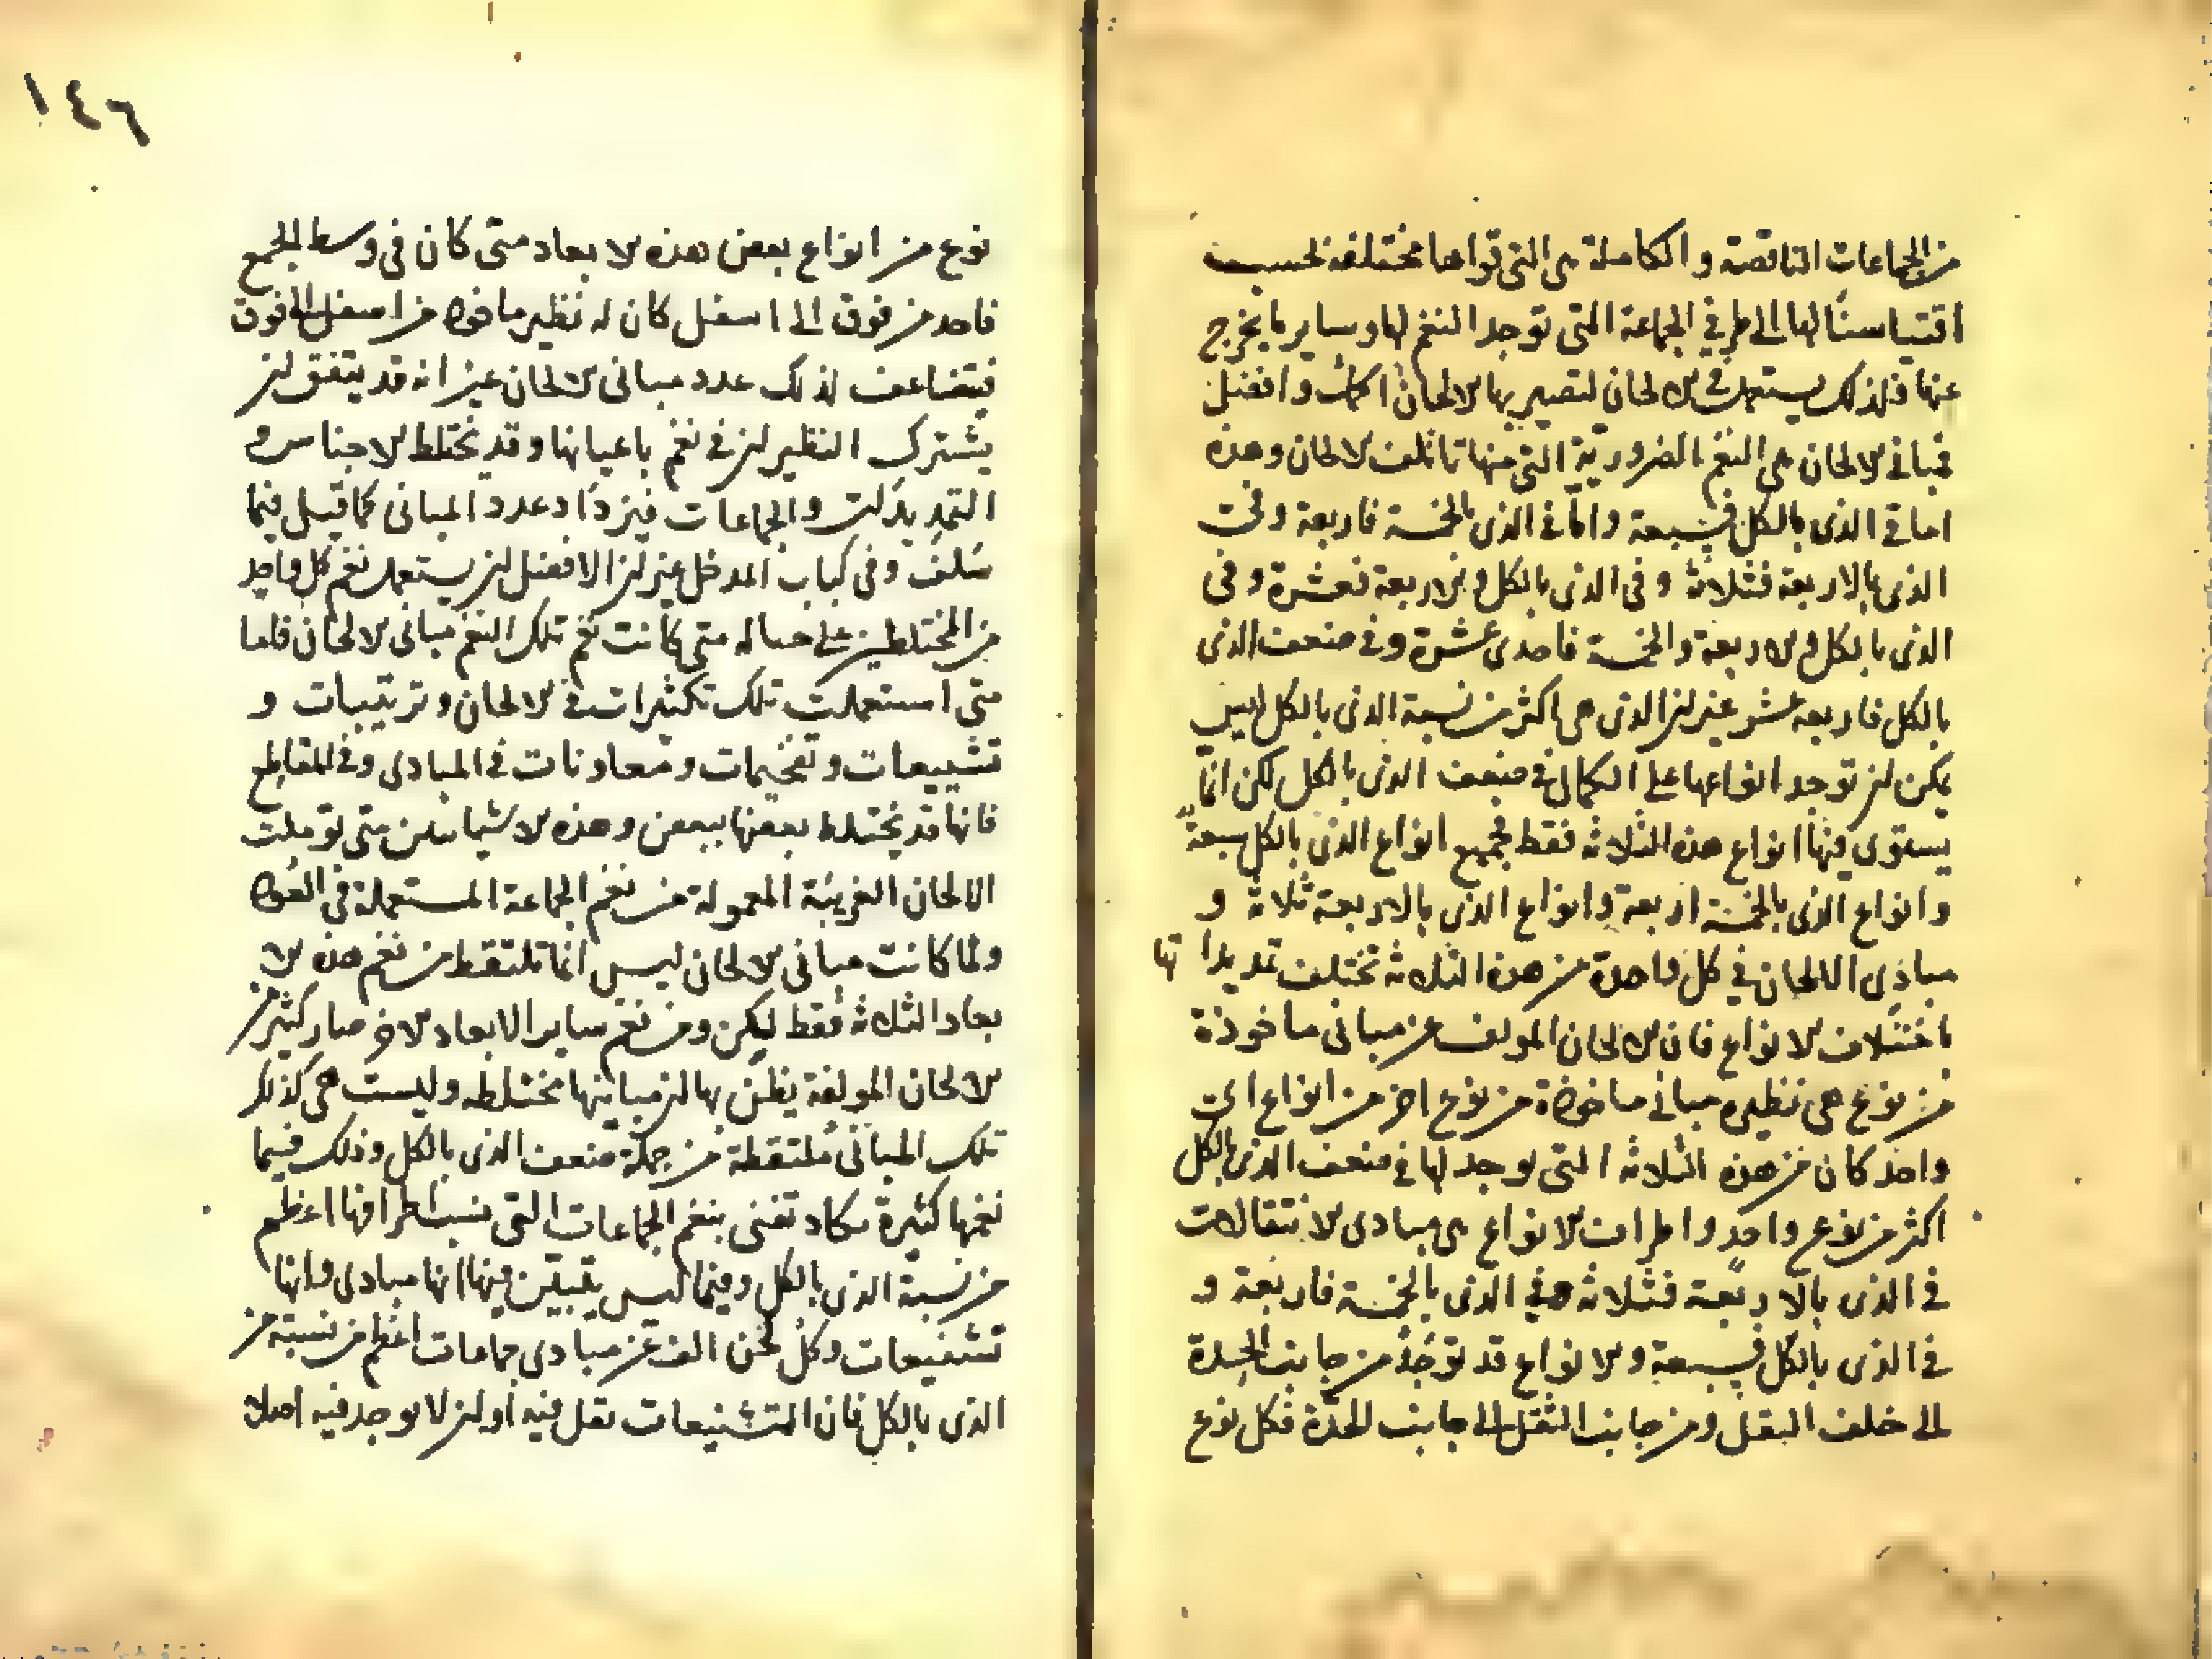 من الجماعات الناقصة والكاملة هى التى قواها مختلفه بحسب
اقتياسنا لها الى طرفي الجماعة التى توجد النغم لها وساير ما يخرج
عنها فلذلك يستعمل فى الالحان لتصير بها الالحان اكمل وافضل
فمبانى الالحان هى النغم الضرورية التى منها تاتلف الالحان وهذه
اما فى الذى بالكل فسبعة واما فى الذى بالخمسة فاربعة وفى
الذى بالاربعة فثلاثة وفى الذى بالكل والاربعة فعشرة وفى
الذى بالكل والاربعة والخمسة فاحدى عشرة وفى ضعف الذى
بالكل فاربعه عشر غير ان الذى هى اكثر من نسبة الذى بالكل ليس
يمكن ان توجد انواعها على الكمال فى ضعف الذى بالكل لكن انما
يستوى فيها انواع هذه الثلاثه فقط فجميع انواع الذى بالكل سبعة
وانواع الذى بالخمسة اربعة وانواع الذى بالاربعة ثلاثة و
مبادى الالحان في كل واحدة من هذه الثلاثه تختلف تمديداتها
باختلاف الانواع فان الالحان المولف عن مبانى ماخوذة
من نوع هى نظيره مبانى ماخوذة من نوع اخر من انواع اى
واحد كان من هذه الثلاثه التى يوجد لها فى ضعف الذى بالكل
اكثر من نوع واحد واطراف الانواع هى مبادى الانتقالات
فى الذى بالاربعة فثلاثه وفي الذى بالخمسة فاربعة و
فى الذى بالكل فسبعة والانواع قد توخذ من جانب الحدة
الى خلف الثقل ومن جانب الثقل الى جانب الحدة فكل نوع
١٤٦
نوع من انواع بعض هذه الابعاد متى كان فى وسط الجمع
فاخذ من فوق الى اسفل كان له نظير ماخوذ من اسفل الى فوق
فيتضاعف لذلك عدد مبانى الالحان غير انه قد يتفق ان
يشترك النظيران فى نغم باعيانها وقد تختلط الاجناس و
التمديدات والجماعات فيزداد عدد المبانى كما قيل فيما
سلف وفى كتاب المدخل غير ان الافضل ان يستعمل نغم كل واحد
من المختلطين على حياله متى كانت نغم تلك النغم مبانى الالحان فاما
متى استعملت تلك تكثيرات فى الالحان وترتيبات و
تشييعات وتفخيمات ومعاونات فى المبادى وفى المقاطع
فانها قد يختلط بعضها ببعض وهذه الاشيا تبين متى توملت
الالحان الغريبة المعمولة من نغم الجماعة المستعملة فى العود
ولما كانت مبانى الالحان ليس انما تلتقط من نغم هذه الا
بعاد الثلاثة فقط لكن ومن نغم ساير الابعاد الاخر صار كثير من
الالحان المولفة يظن بها ان مبانيها مختلطه وليست هى كذلك
تلك المبانى ملتقطة من جملة ضعف الذى بالكل وذلك فيما
نغمها كثيرة تكاد تفنى بنغم الجماعات التى نسب اطرافها اعظم
من نسبة الذى بالكل وفيما ليس يتبين فيها انها مبادى وانها
تشييعات وكل لحن الف عن مبادى جماعات اعظم من نسبته من
الذى بالكل فان التشييعات تقل فيه او ان لا يوجد فيه اصلا